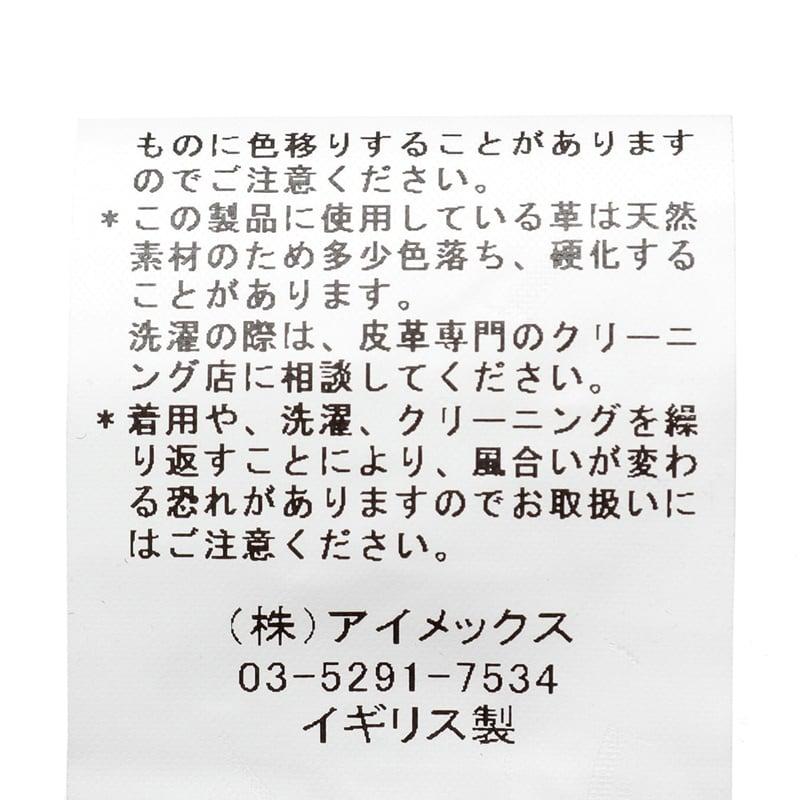 ものに色移りすることがあります
のでご注意ください。
*この製品に使用している革は天然
素材のため多少色落ち、硬化する
ことがあります。
洗濯の際は、皮革専門のクリーニ
ング店に相談してください。
*着用や、洗濯、クリーニングを繰
り返すことにより、風合いが変わ
る恐れがありますのでお取扱いに
はご注意ください。
(株)アイメックス
03-5291-7534
イギリス製